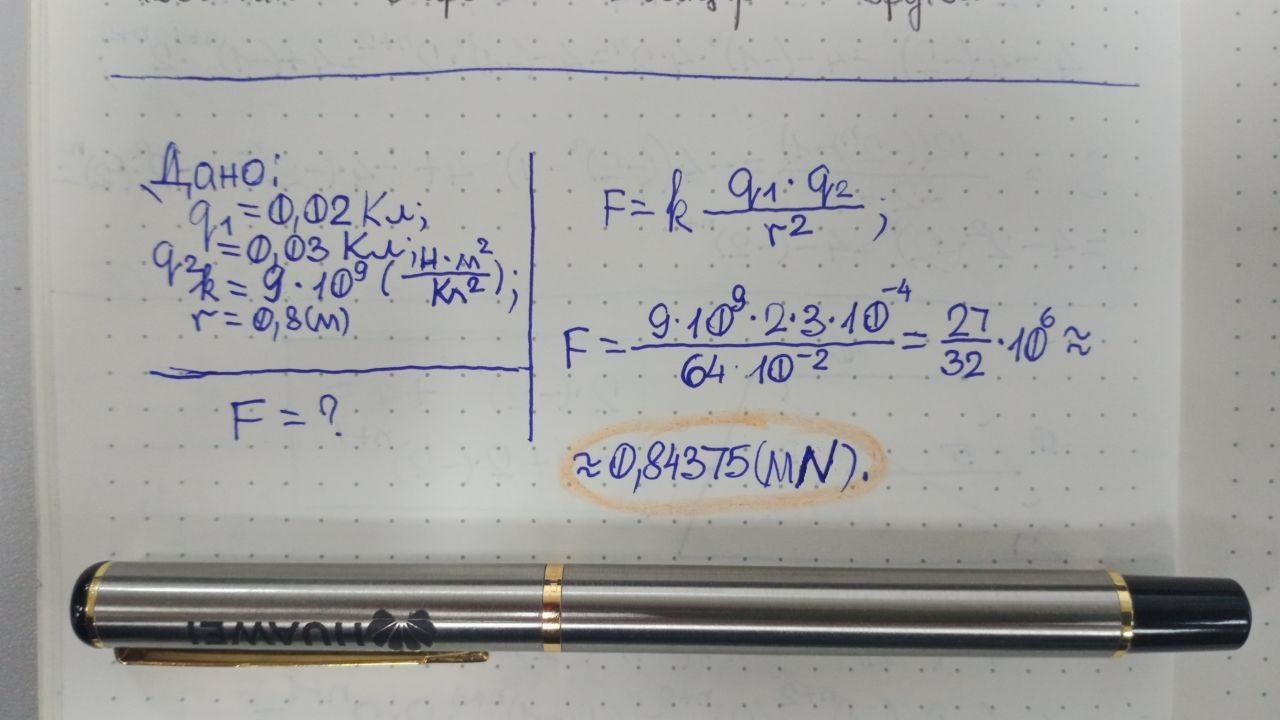 Дано:
q₁ = 0,02 Кл;
q₂ = 0,03 Кл;
k = 9·10⁹ (Н·м²/Кл²);
r = 0,8(м)
F = ?
F = k q₁·q₂/r²;
F = 9·10⁹·2·3·10⁻⁴/64·10⁻² = 27/32·10⁶ ≈
≈ 0,84375(МN).
HUAWEI